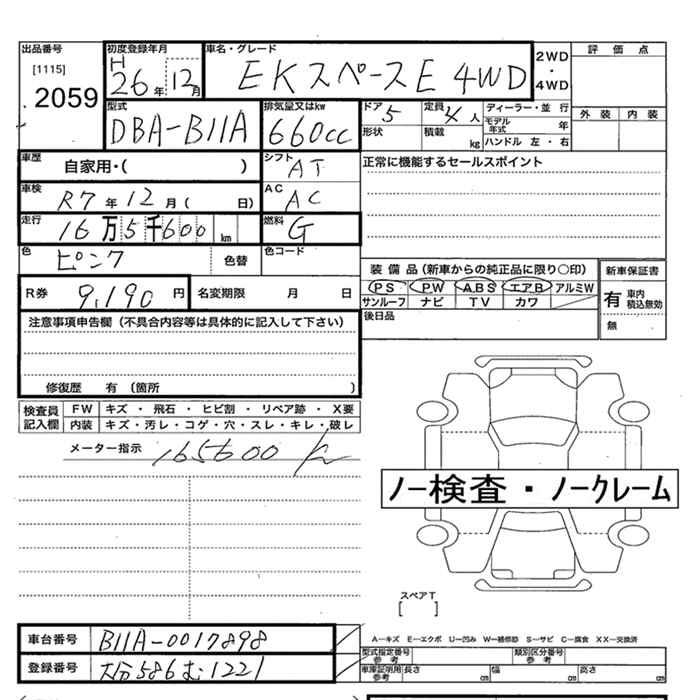 出品番号 [1115] 2059
初度登録年月 H 26 年 12 月
車名・グレード EKスペースE 4WD
2WD ・ 4WD
評価点
外装 内装
型式 DBA-B11A
排気量又はkw 660cc
ドア 5
定員 4 人
形状
積載 kg
ディーラー・並行
モデル年式 年
ハンドル 左・右
車歴 自家用・( )
シフト AT
正常に機能するセールスポイント
車検 R7 年 12 月 ( 日)
AC AC
走行 16 万 5 千 600 km
燃料 G
色 ピンク 色替
色コード
装備品(新車からの純正品に限り○印)
新車保証書
PS PW ABS エアB アルミW
サンルーフ ナビ TV カワ
有 車内積込無効
無
R券 9,190 円
名変期限 月 日
後日品
注意事項申告欄(不具合内容等は具体的に記入して下さい)
修復歴 有 (箇所 )
検査員記入欄
FW キズ・飛石・ヒビ割・リペア跡・X要
内装 キズ・汚レ・コゲ・穴・スレ・キレ・破レ
メーター指示 165600 km
ノー検査・ノークレーム
スペアT
[ ]
車台番号 B11A-0017898
登録番号 大分 586 む 1221
A—キズ E—エクボ U—凹み W—補修跡 S—サビ C—腐食 XX—交換済
型式指定番号 参考
類別区分番号 参考
車庫証明用 参考 長さ cm 幅 cm 高さ cm